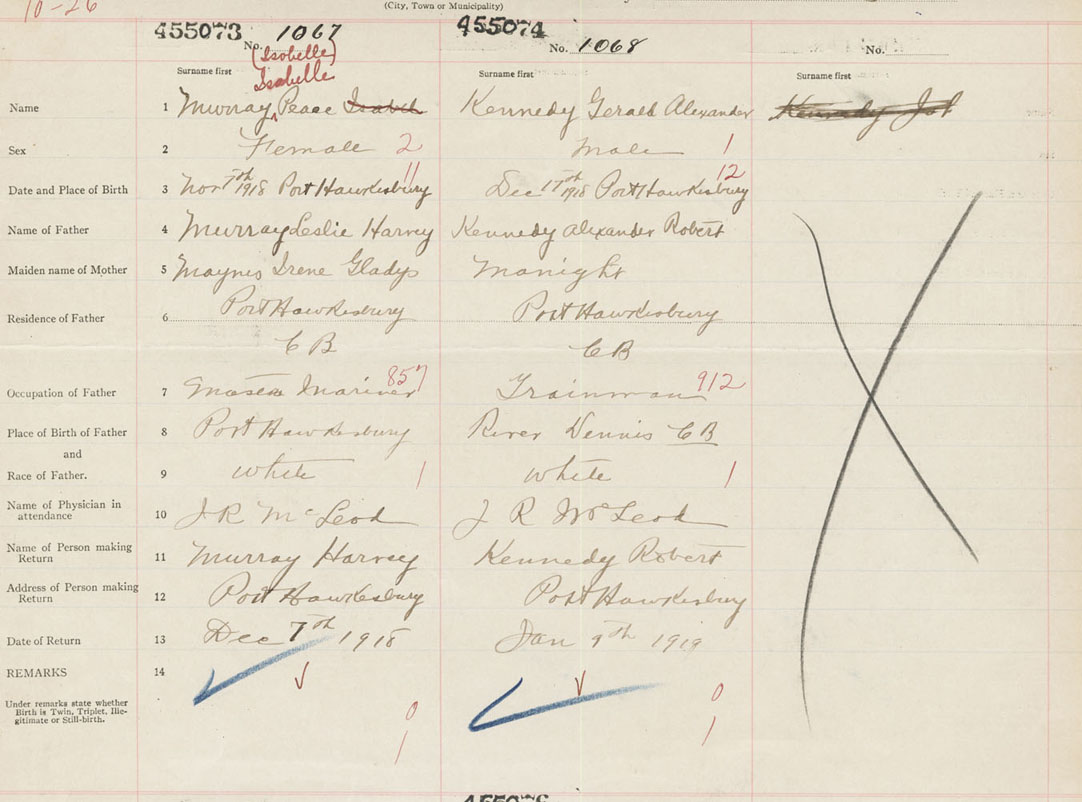 10-26
(City, Town or Municipality)
455073
No. 1067
(Isobelle)
Isabelle
455074
No. 1068
No.
Surname first
Surname first
Surname first
Name 1 Murray, Peace Isabel Kennedy Gerald Alexander Kennedy
Sex 2 Female 2 Male 1
Date and Place of Birth 3 Nov 7th 1918 Port Hawkesbury 11 Dec 17th 1918 Port Hawkesbury 12
Name of Father 4 Murray Leslie Harvey Kennedy Alexander Robert
Maiden name of Mother 5 Irene Gladys
Residence of Father 6 Port Hawkesbury Port Hawkesbury
C B C B
Occupation of Father 7 Master Mariner 857 Trainman 912
Place of Birth of Father 8 Port Hawkesbury River Dennis C B
and
Race of Father. 9 White 1 White 1
Name of Physician in
attendance 10 J R McLeod J R McLeod
Name of Person making
Return 11 Murray Harvey Kennedy Robert
Address of Person making
Return 12 Port Hawkesbury Port Hawkesbury
Date of Return 13 Dec 7th 1918 Jan 9th 1919
REMARKS 14
Under remarks state whether
Birth is Twin, Triplet, Ille-
gitimate or Still-birth.
0 0
1 1